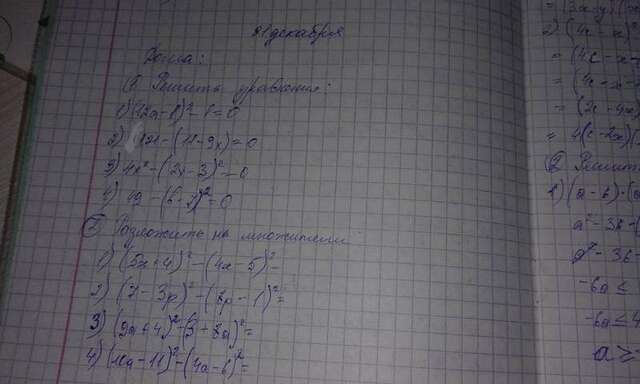 21 декабря
Дома:
① Решить уравнения:
1) (12a - 1)² - 1 = 0
2) 121 - (11 - 9x) = 0
3) 4x² - (2x - 3)² = 0
4) 49 - (6 - )² = 0
② Разложить на множители
1) (5x + 4)² - (4x - 5)² -
2) (7 - 3p)² - (8p - 1)² =
3) (9a + 4)² - (3 - 8a)² =
4) (10a - 11)² - (4a - 6)² =
2) (4c - x)
= (4c - x -
= (4c - x -
= (2c - 4x)
= 4(c - 2x)
② Решить
1) (a - b) · (a
a² - 3b -
a² - 3b -
-6a ≤
-6a ≤ 4
a ≥